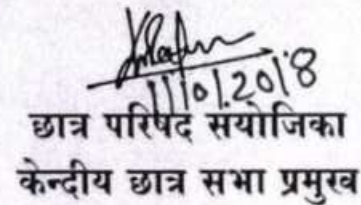 11/01/2018
छात्र परिषद संयोजिका
केन्दीय छात्र सभा प्रमुख